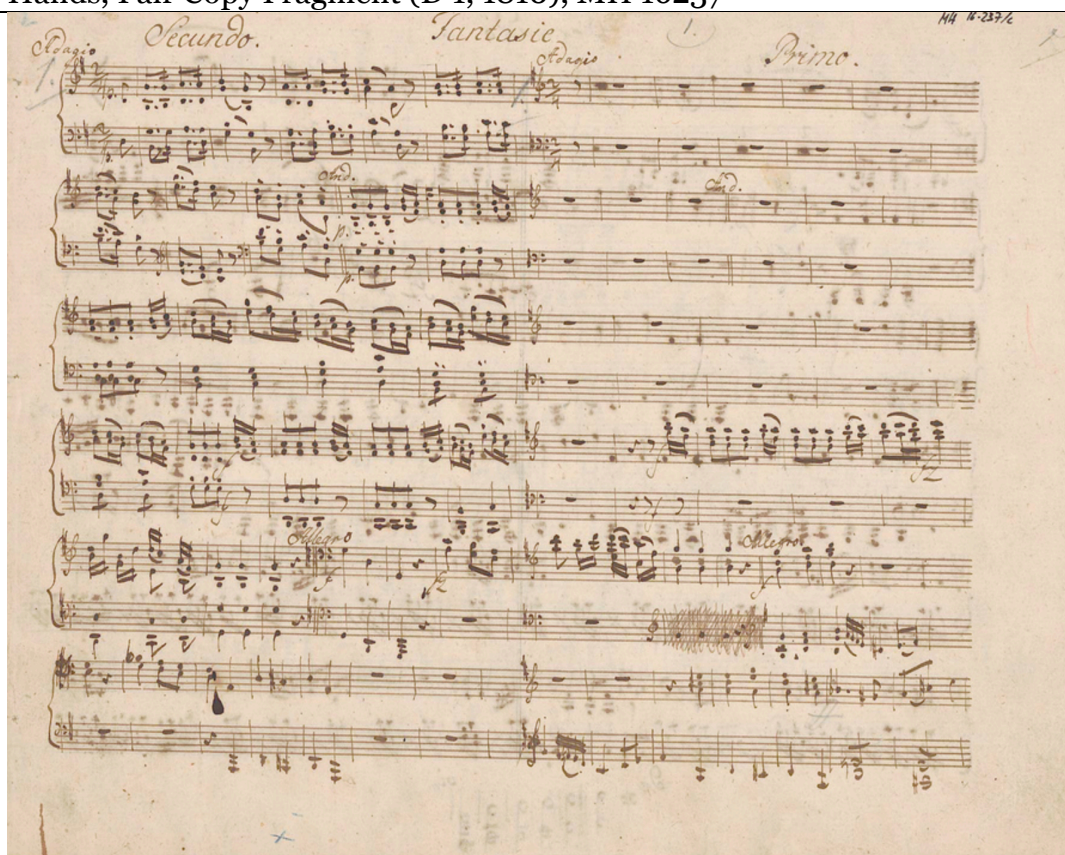 Hands, Fair Copy Fragment (D 1, 1810), MH 16237
MH 16237/c
Secundo. Fantasie 1. Primo.
Adagio Adagio
1. 1.
And. And.
p.
p.
f fz
f f
Allegro Allegro
f fz f